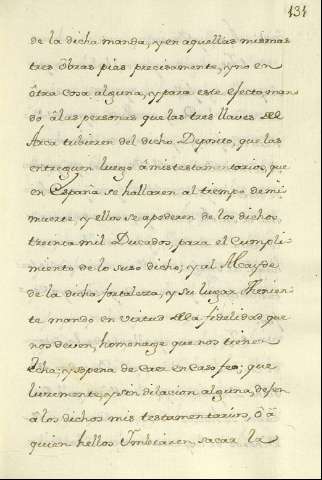 131
de la dicha manda, y en aquellas mismas
tres ôbras pias precisamente, y no en
ôtra cosa alguna, y para este efecto man-
do â las personas que las tres llaves del
Arca tubieren del dicho Deposito, que las
entreguen luego â mis testamentarios, que
en España se hallaren al tiempo de mi
muerte, y ellos se apoderen de los dichos
treinta mil Ducados, para el Cumpli-
miento de lo suso dicho; y al Alcayde
de la dicha fortaleza, y su lugar Thenien-
te mando en virtud de la fidelidad que
nos deven, homenage que nos tienen
echa; y sopena de Caer en Caso feo; que
livremente, y sin dilacion alguna, dexen
â los dichos mis testamentarios, ô â
quien hellos Ymbiaren, sacar la